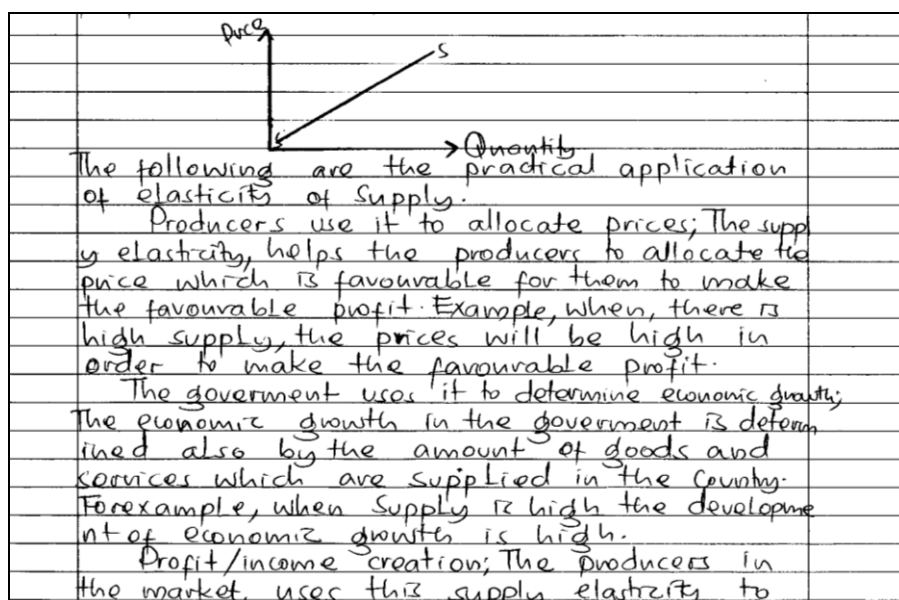 Price
S
Quantity
The following are the practical application
of elasticity of supply.
Producers use it to allocate prices; The supp
y elasticity, helps the producers to allocate the
price which is favourable for them to make
the favourable profit. Example, when, there is
high supply, the prices will be high in
order to make the favourable profit.
The goverment uses it to determine economic growth;
The economic growth in the goverment is determ
ined also by the amount of goods and
services which are supplied in the Country.
Forexample, when Supply is high the developme
nt of economic growth is high.
Profit/income creation; The producers in
the market, uses this supply elasticity to